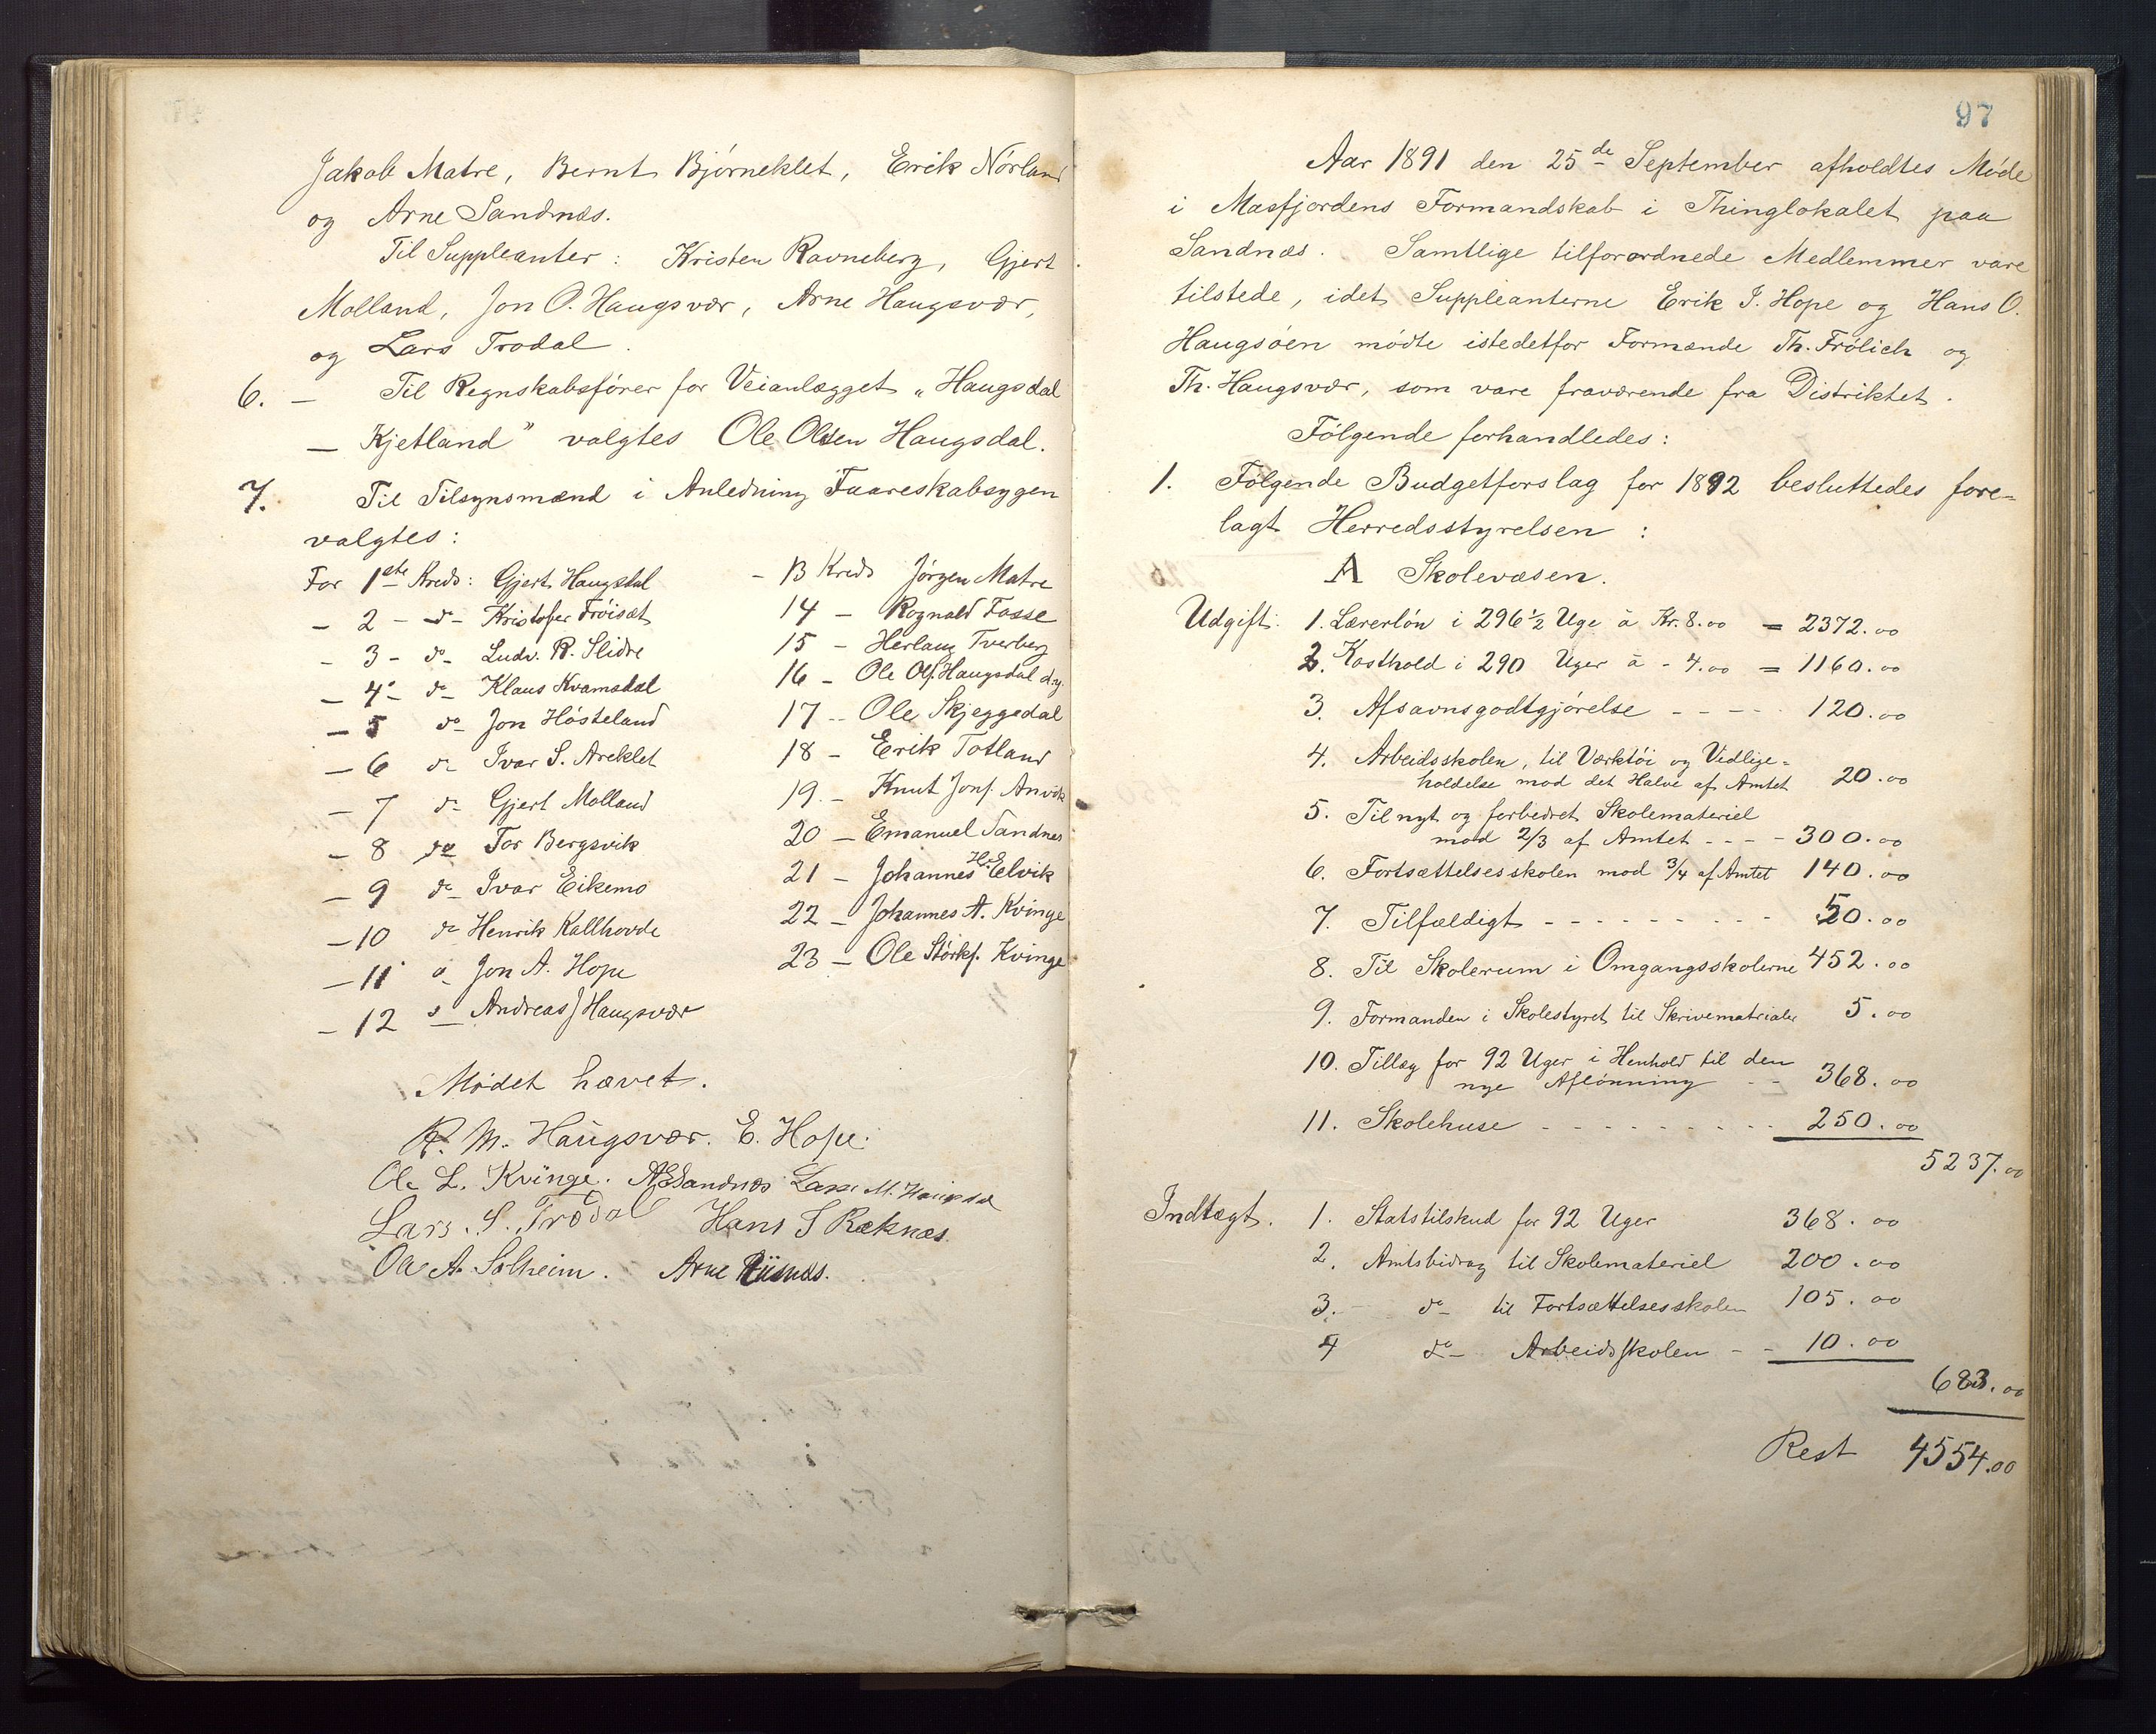 Jakob Matre, Bernt Bjørneklet, Erik Nórland
og Arne Sandnæs.
Til Suppleanter: Kristen Ravneberg, Gjert
Molland, Jon O. Haugsvær, Arne Haugsvær,
og Lars Trodal.
6. — Til Regnskabsfører for Veianlægget „Haugsdal
— Kjetland" valgtes Ole Olsen Haugsdal.
7. Til Tilsynsmænd i Anledning Faareskabsygen
valgtes:
For 1ste Kreds: Gjert Haugsdal
– 2 – do Kristofer Frøiset
– 3 – do Ludv. R. Slidre
– 4 – do Klaus Kvamsdal
– 5 do Jon Hósteland
– 6 do Ivar S. Areklet
– 7 do Gjert Molland
– 8 do Tor Bergsvik
– 9 do Ivar Eikemo
– 10 do Henrik Kallhovde
– 11 do Jon A. Hope
– 12 do Andreas J Haugsvær
– 13 Kreds Jórgen Matre
14 – Rognald Fosse
15 – Herlaug Tverberg
16 – Ole Olf. Haugsdal d.y.
17 – Ole Skjeggedal
18 – Erik Totland
19. – Knut Jonf. Anvik
20 – Emanuel Sandnes
21 – Johannes H. Elvik
22 – Johannes A. Kvinge
23 – Ole Størkf. Kvinge
Mødet hævet.
R. M. Haugsvær. E. Hope.
Ole L. Kvinge. A Sandnæs Lasse M. Haugsdal
Lars. S. Trodal Hans S Ræknæs.
Ole A. Solheim. Arne Riisnæs.
97
Aar 1891 den 25de September afholdtes Møde
i Masfjordens Formandskab i Thinglokalet paa
Sandnæs. Samtlige tilforordnede Medlemmer vare
tilstede, idet Suppleanterne Erik I. Hope og Hans O.
Haugsóen mødte istedetfor Formænde Th. Frólich og
Th. Haugsvær, som vare fraværende fra Distriktet.
Fólgende forhandledes:
1. Følgende Budgetforslag for 1892 besluttedes fore-
lagt Herredsstyrelsen:
A Skolevæsen.
Udgift: 1. Lærerlón i 296 1/2 Uge à Kr. 8.00 = 2372.00
2. Kosthold i 290 Uger à - 4.00 = 1160.00
3. Afsavnsgodtgjórelse - - - - 120.00
4. Arbeidsskolen, til Værktói og Vedlige-
holdelse mod det Halve af Amtet 20.00
5. Til nyt og forbedret Skolemateriel
mod 2/3 af Amtet - - - - 300.00
6. Fortsættelsesskolen mod 3/4 af Amtet 140.00
7. Tilfældigt - - - - - - - - - 50.00
8. Til Skolerum i Omgangsskolerne 452.00
9. Formanden i Skolestyret til Skrivematrialer 5.00
10. Tillæg for 92 Uger i Henhold til den
nye Aflónning - - 368.00
11. Skolehuse - - - - - - - - - 250.00
5237.00
Indtægt. 1. Statstilskud for 92 Uger 368.00
2. Amtsbidrag til Skolemateriel 200.00
3. do til Fortsættelsesskolen 105.00
4 do Arbeidsskolen - - 10.00
683.00
Rest 4554.00